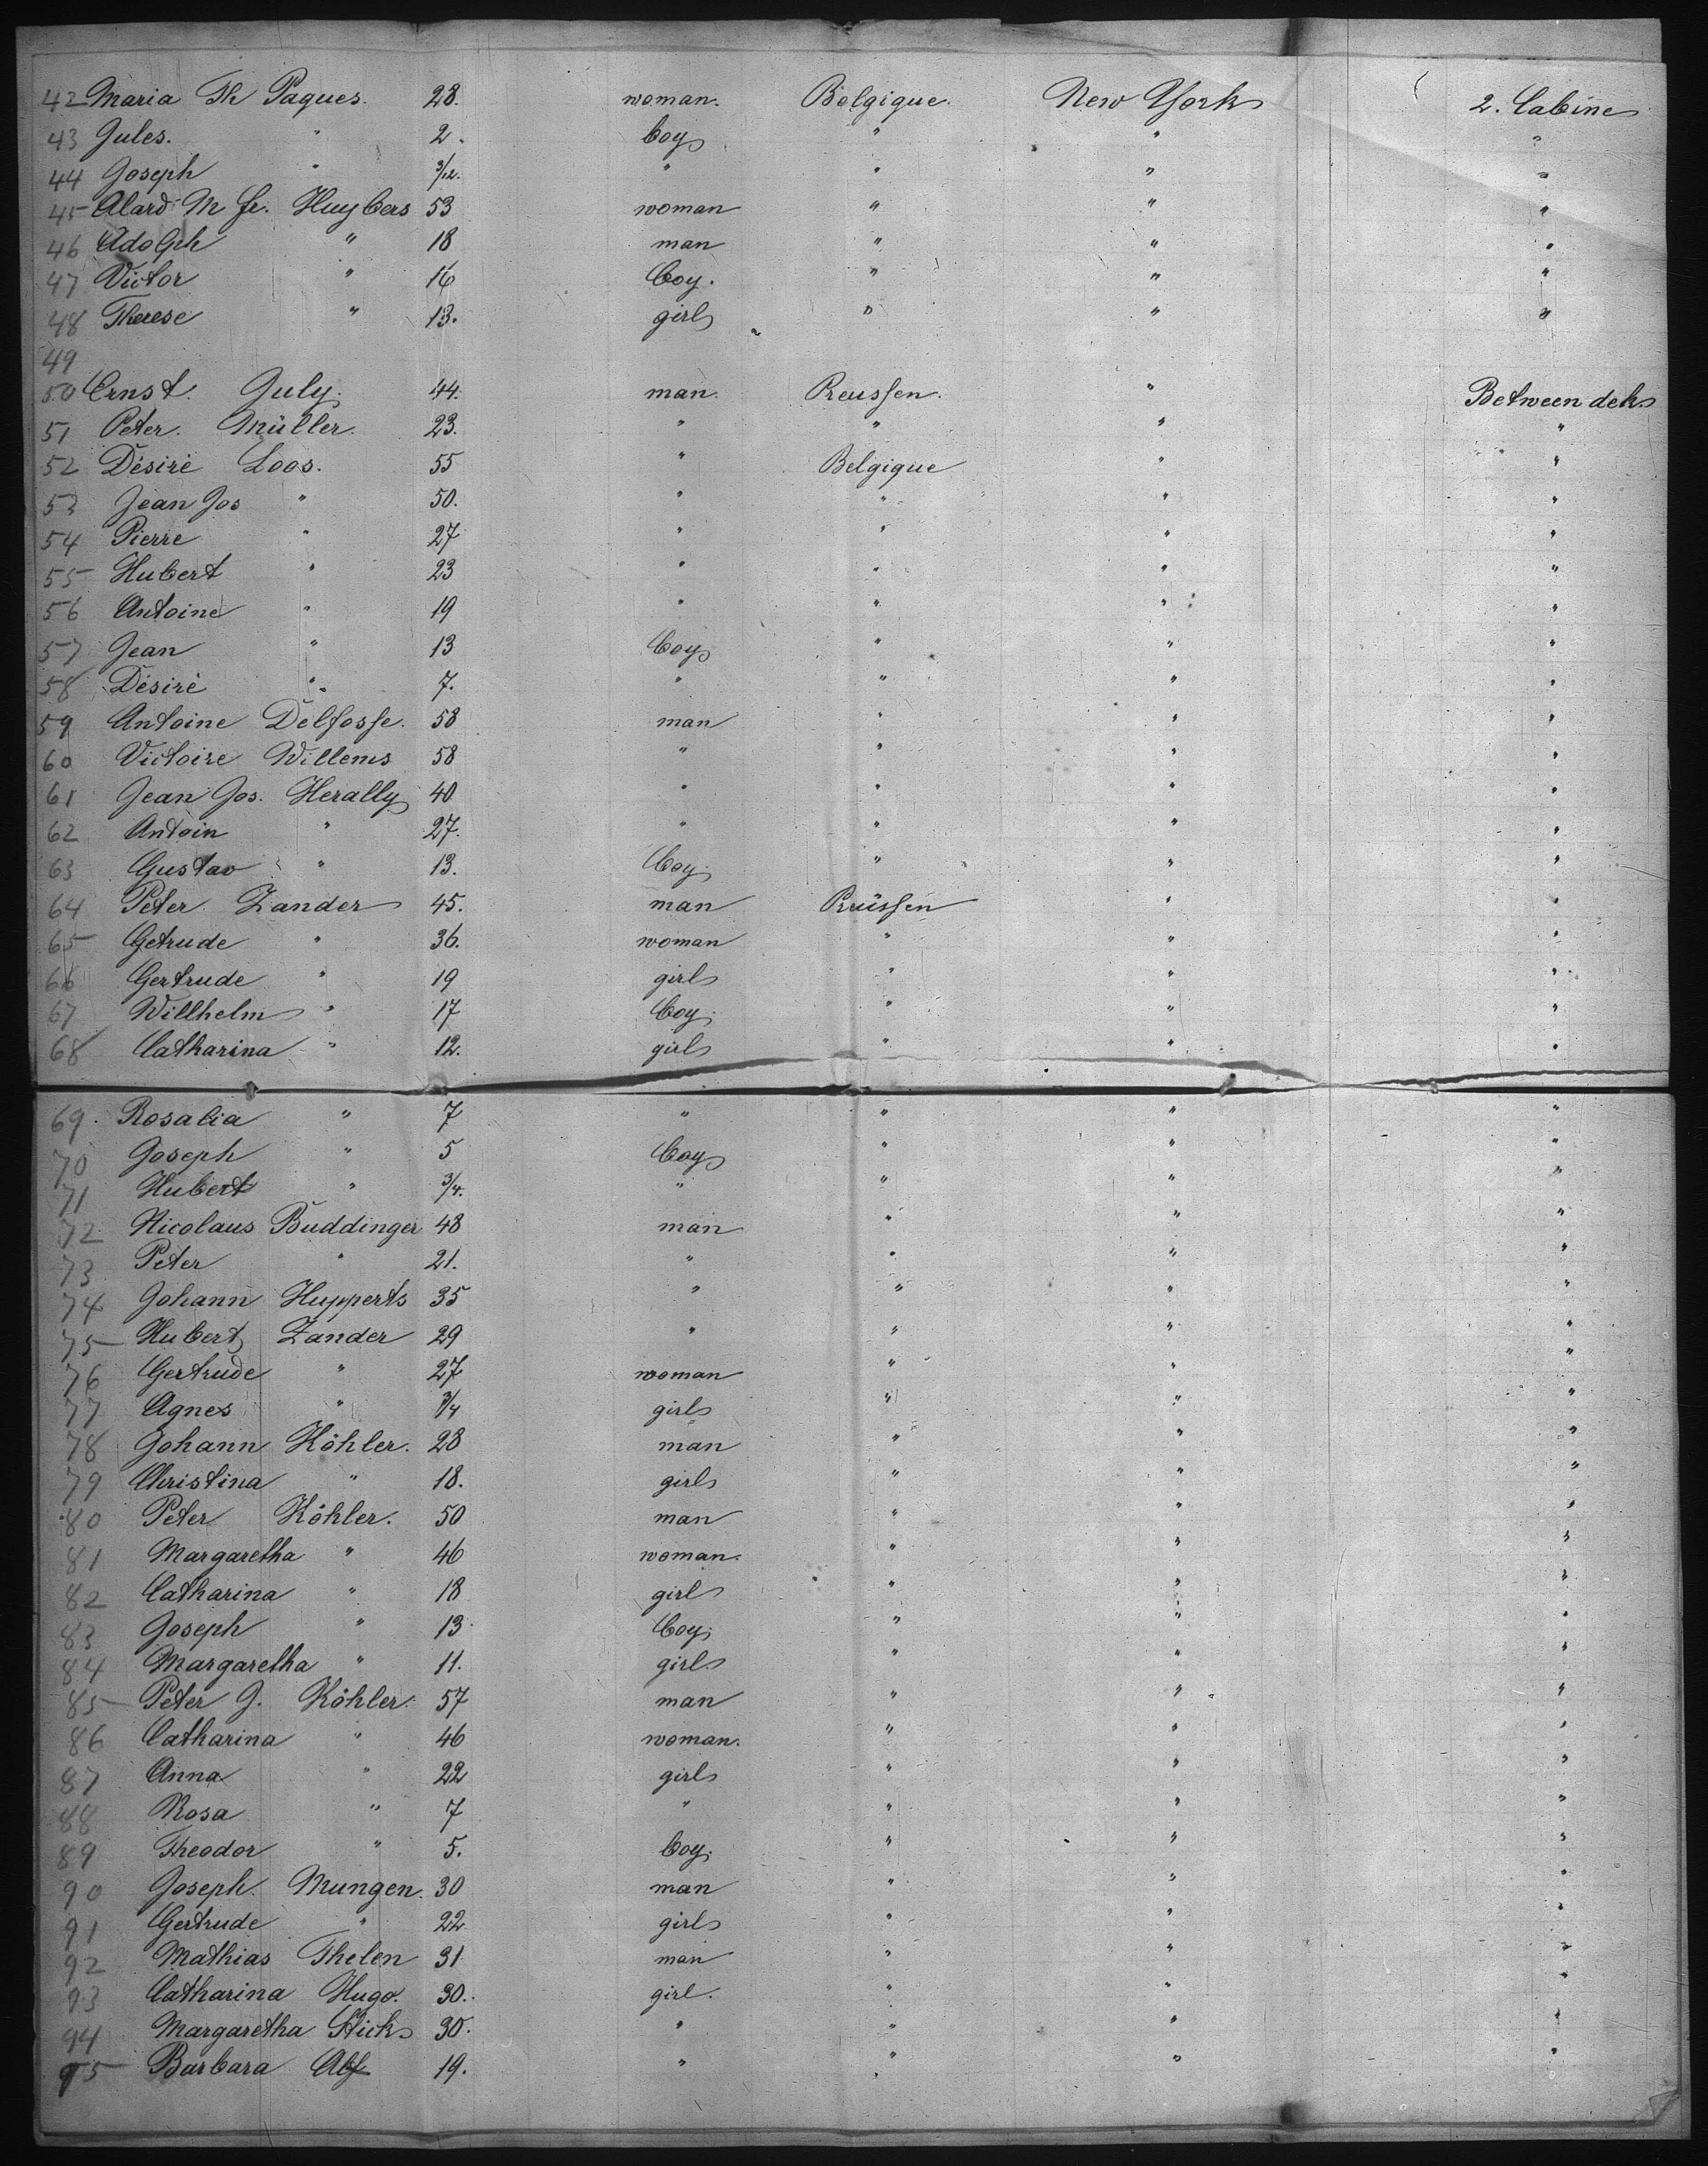 42 Maria Th Paques. 28. woman. Belgique. New York 2. Cabine
43 Jules. " 2. boy " " "
44 Joseph " 3/12. " " " "
45 Alard M fr. Huybers 53 woman " " "
46 Adolph " 18 man " " "
47 Victor " 16 boy. " " "
48 Therese " 13. girl " " "
49
50 Ernst. July. 44. man. Preussen. " Between deks
51 Peter. Müller. 23. " " " "
52 Désiré Loos. 55 " Belgique " "
53 Jean Jos " 50. " " " "
54 Pierre " 27 " " " "
55 Hubert " 23 " " " "
56 Antoine " 19 " " " "
57 Jean " 13 boy " " "
58 Désiré " 7. " " " "
59 Antoine Delfosse. 58 man " " "
60 Victoire Willems 58 " " " "
61 Jean Jos. Herally 40 " " " "
62 Antoin " 27. " " " "
63 Gustav " 13. boy " " "
64 Peter Zander 45. man Preüssen " "
65 Getrude " 36. woman " " "
66 Gertrude " 19 girl " " "
67 Willhelm " 17 boy " " "
68 Catharina " 12. girl " " "
69. Rosalia " 7 " " " "
70 Joseph " 5 boy " " "
71 Hubert " 3/4. " " " "
72 Nicolaus Buddinger 48 man " " "
73 Peter " 21. " " " "
74 Johann Hupperts 35 " " " "
75 Hubert Zander 29 " " " "
76 Gertrude " 27 woman " " "
77 Agnes " 3/4 girl " " "
78 Johann Köhler. 28 man " " "
79 Christina " 18. girl " " "
80 Peter Köhler. 50 man " " "
81 Margaretha " 46 woman. " " "
82 Catharina " 18 girl " " "
83 Joseph " 13 boy " " "
84 Margaretha " 11. girl " " "
85 Peter J. Köhler. 57 man " " "
86 Catharina " 46 woman. " " "
87 Anna " 22 girl " " "
88 Rosa " 7 " " " "
89 Theodor " 5. boy. " " "
90 Joseph. Mungen. 30 man " " "
91 Gertrude " 22 girl " " "
92 Mathias Thelen 31 man " " "
93 Catharina Hugo. 30. girl. " " "
94 Margaretha 30. " " " "
95 Barbara 19. " " " "